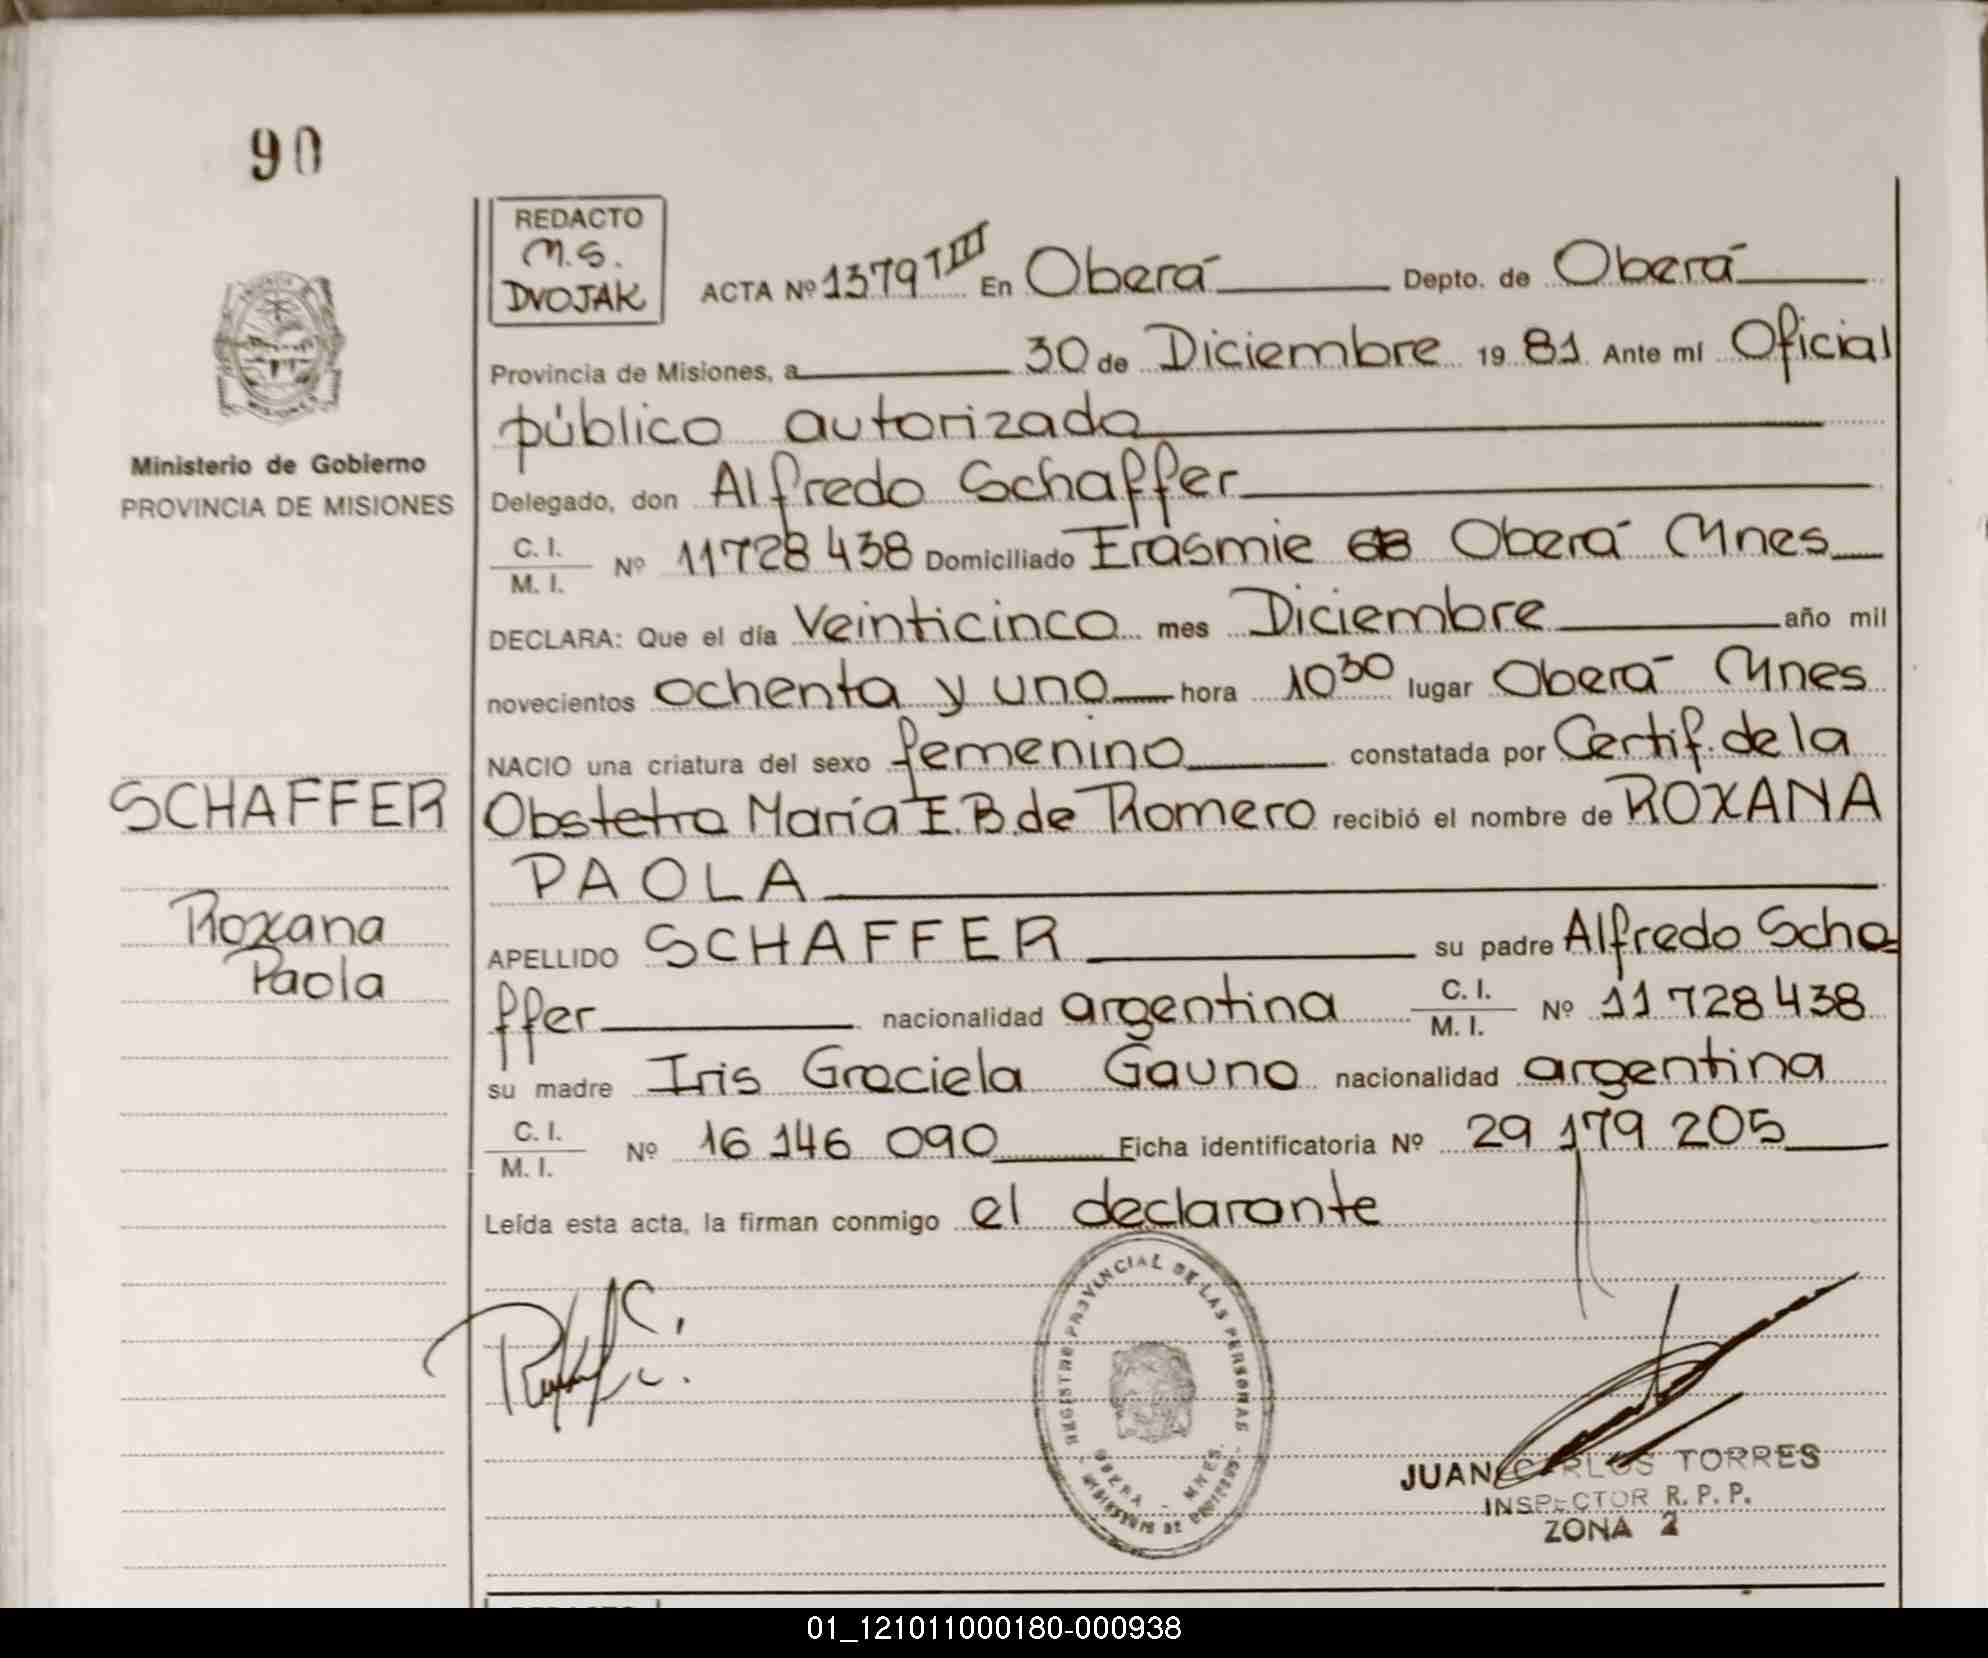 90
REDACTO
M.S.
DVOJAK
ACTA Nº 1379 TIII En Oberá Depto. de Oberá
Provincia de Misiones, a 30 de Diciembre 19 81 Ante mí Oficial
público autorizado
Ministerio de Gobierno
PROVINCIA DE MISIONES
Delegado, don Alfredo Schaffer
C. I.
M. I. Nº 11728 438 Domiciliado Erasmie Oberá Mnes
DECLARA: Que el día Veinticinco mes Diciembre año mil
novecientos ochenta y uno hora 10 30 lugar Oberá Mnes
NACIO una criatura del sexo femenino constatada por Certif. de la
SCHAFFER
Obstetra María E.B. de Romero recibió el nombre de ROXANA
PAOLA
Roxana
Paola
APELLIDO SCHAFFER su padre Alfredo Scha
ffer nacionalidad argentina C. I. M. I. Nº 11 728 438
su madre Iris Graciela Gauno nacionalidad argentina
C. I.
M. I. Nº 16 146 090 Ficha identificatoria Nº 29 179 205
Leída esta acta, la firman conmigo el declarante
REGISTRO PROVINCIAL DE LAS PERSONAS
OBERA - MNES.
JUAN CARLOS TORRES
INSPECTOR R. P. P.
ZONA 2
01_121011000180-000938